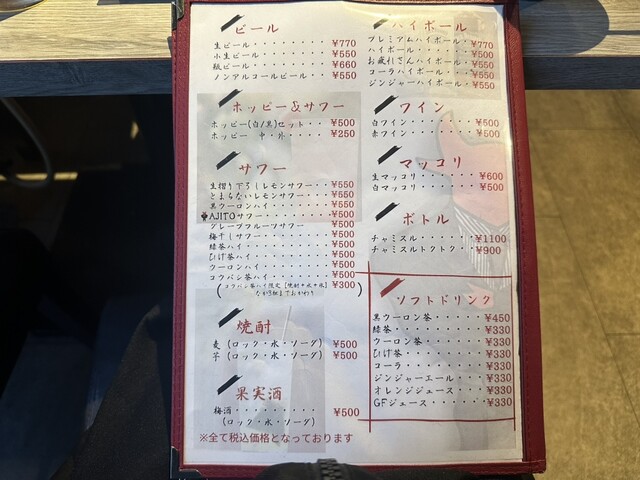 ビール
生ビール・・・・・・・・ ¥770
小生ビール・・・・・・・ ¥550
瓶ビール・・・・・・・・ ¥660
ノンアルコールビール・・ ¥550
ホッピー&サワー
ホッピー(白/黒)セット・・・ ¥500
ホッピー 中・外・・・・ ¥250
サワー
生搾り下ろしレモンサワー・・ ¥550
とまらないレモンサワー・・・ ¥550
黒ウーロンハイ・・・・・・・ ¥550
AJITOサワー・・・・・・・・ ¥500
グレープフルーツサワー ¥500
梅干しサワー・・・・・・・・ ¥500
緑茶ハイ・・・・・・・・・・ ¥500
ひげ茶ハイ・・・・・・・・・ ¥500
ウーロンハイ・・・・・・・・ ¥500
コウバシ茶ハイ・・・・・・・ ¥500
(コウバシ茶ハイ限定[焼酎+水+氷] ¥300
なか3杯までおかわり)
焼酎
麦(ロック・水・ソーダ) ¥500
芋(ロック・水・ソーダ) ¥500
果実酒
梅酒・・・・・・・・・ ¥500
(ロック・水・ソーダ)
※全て税込価格となっております
ハイボール
プレミアムハイボール・ ¥770
ハイボール・・・・・・ ¥500
お疲れさんハイボール・ ¥550
コーラハイボール・・・ ¥550
ジンジャーハイボール・ ¥550
ワイン
白ワイン・・・・・・・・ ¥500
赤ワイン・・・・・・・・ ¥500
マッコリ
生マッコリ・・・・・・・ ¥600
白マッコリ・・・・・・・ ¥500
ボトル
チャミスル・・・・・・・ ¥1100
チャミスルトクトク・・・ ¥900
ソフトドリンク
黒ウーロン茶・・・・・・ ¥450
緑茶・・・・・・・・・・ ¥330
ウーロン茶・・・・・・・ ¥330
ひげ茶・・・・・・・・・ ¥330
コーラ・・・・・・・・・ ¥330
ジンジャーエール・・・・ ¥330
オレンジジュース・・・・ ¥330
GFジュース・・・・・・ ¥330